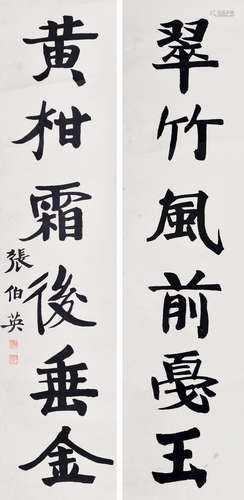 翠竹風前戛玉
黃柑霜後垂金
張伯英